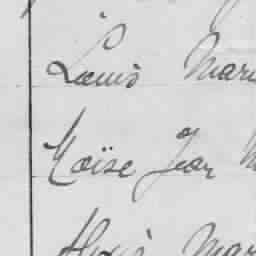 Louis Mari
Moïse Jean M
Alexis Mar